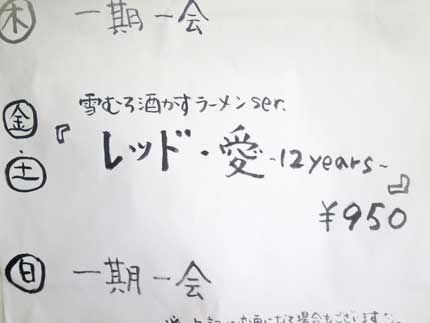 木 一期一会
雪むろ酒かすラーメンser.
金・土 『レッド・愛 ~12years~』
¥950
日 一期一会
になる場合もございます